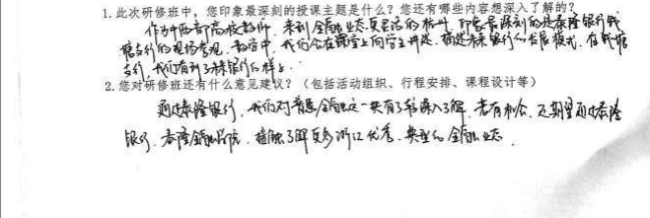 1.此次研修班中，您印象最深刻的授课主题是什么？您还有哪些内容想深入了解的？
作为中西部高校教师，来到金融业态更灵活的杭州，印象最深刻的是泰隆银行我
支行的现场参观。教学中，我们会在课堂上向学生讲述、描述未来银行的发展模式，在
支行，我们看到了未来银行的样子。
2.您对研修班还有什么意见建议？（包括活动组织、行程安排、课程设计等）
通过泰隆银行，我们对普惠金融这一块有了深入了解，若有机会，还期望通过泰隆
银行、泰隆金融学院，接触了解更多浙江优秀、典型的金融业态。